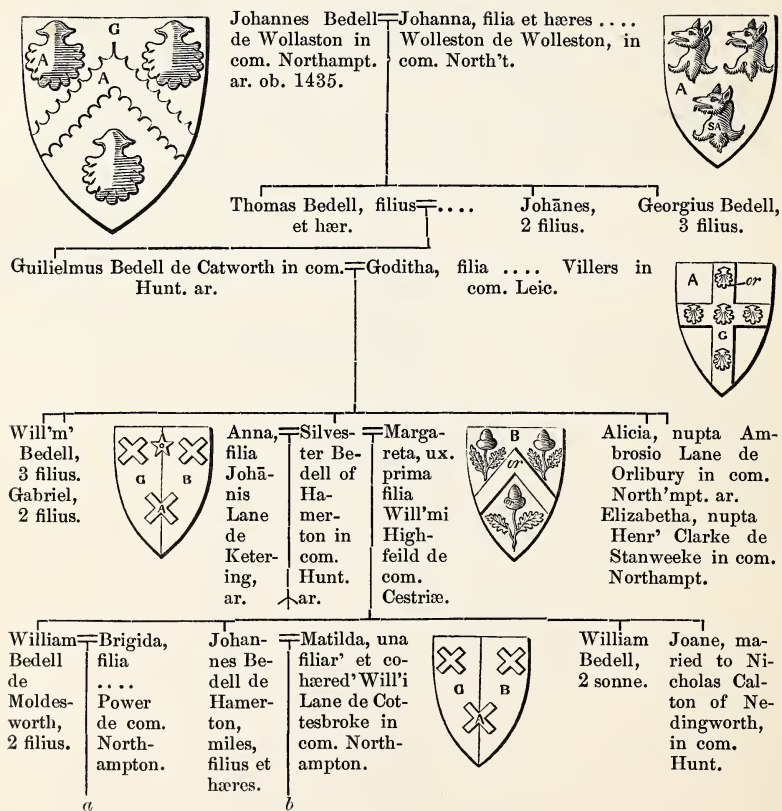 G
A
A
Johannes Bedell
de Wollaston in
com. Northampt.
ar. ob. 1435.
Johanna, filia et hæres ....
Wolleston de Wolleston, in
com. North't.
A
SA
Thomas Bedell, filius
et hær.
....
Johānes,
2 filius.
Georgius Bedell,
3 filius.
Guilielmus Bedell de Catworth in com.
Hunt. ar.
Goditha, filia .... Villers in
com. Leic.
A
or
G
Will'm'
Bedell,
3 filius.
Gabriel,
2 filius.
G
B
A
Anna,
filia
Johā-
nis
Lane
de
Keter-
ing,
ar.
Silves-
ter Be-
dell of
Ha-
mer-
ton in
com.
Hunt.
ar.
Marga-
reta, ux.
prima
filia
Will'mi
High-
feild de
com.
Cestriæ.
B
or
Alicia, nupta Am-
brosio Lane de
Orlibury in com.
North'mpt. ar.
Elizabetha, nupta
Henr' Clarke de
Stanweeke in com.
Northampt.
William
Bedell
de
Moldes-
worth,
2 filius.
Brigida,
filia
....
Power
de com.
North-
ampton.
Johan-
nes Be-
dell de
Hamer-
ton,
miles,
filius et
hæres.
Matilda, una
filiar' et co-
hæred' Will'i
Lane de Cot-
tesbroke in
com. North-
ampton.
G
B
A
William
Bedell,
2 sonne.
Joane, ma-
ried to Ni-
cholas Cal-
ton of Ne-
dingworth,
in com.
Hunt.
a
b